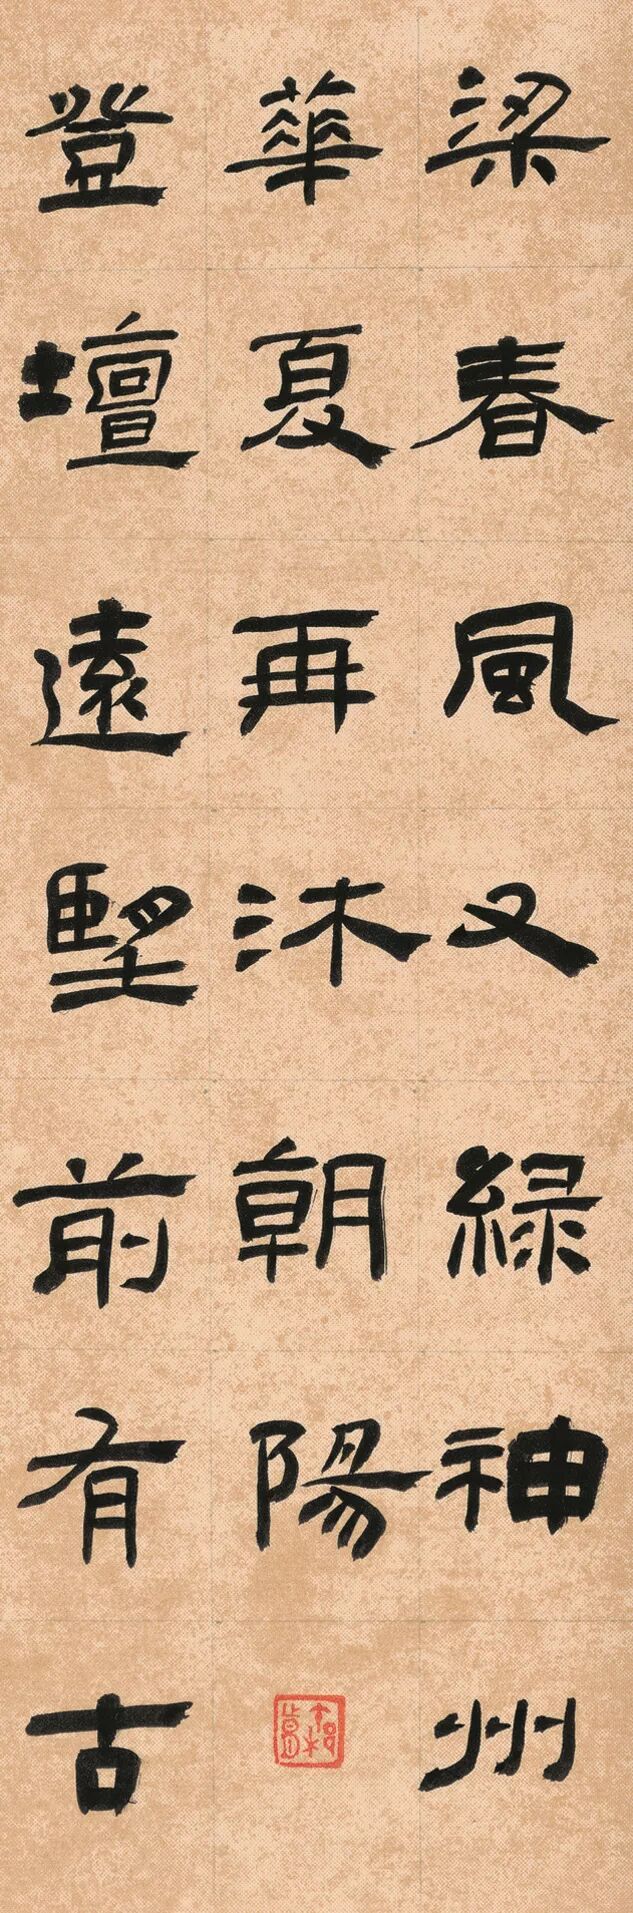 梁春風又綠神州
華夏再沐朝陽
登壇遠朢前有古